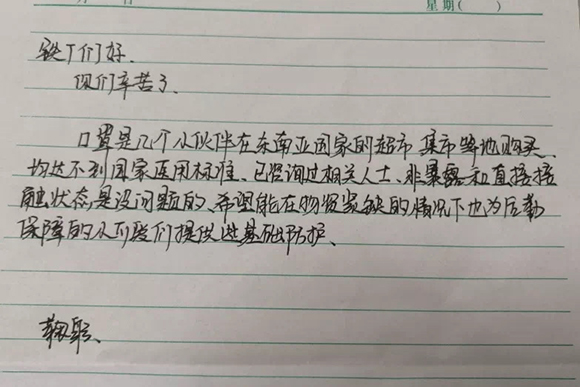 星期( )
铁丁们好、
你们辛苦了
口罩是几个小伙伴在东南亚国家的超市 集市等地购买、
均达不到国家医用标准、已咨询过相关人士、非暴露和直接接
触状态,是没问题的、希望能在物资紧缺的情况下也为后勤
保障的小可爱们提供些基础防护、
鞠躬、